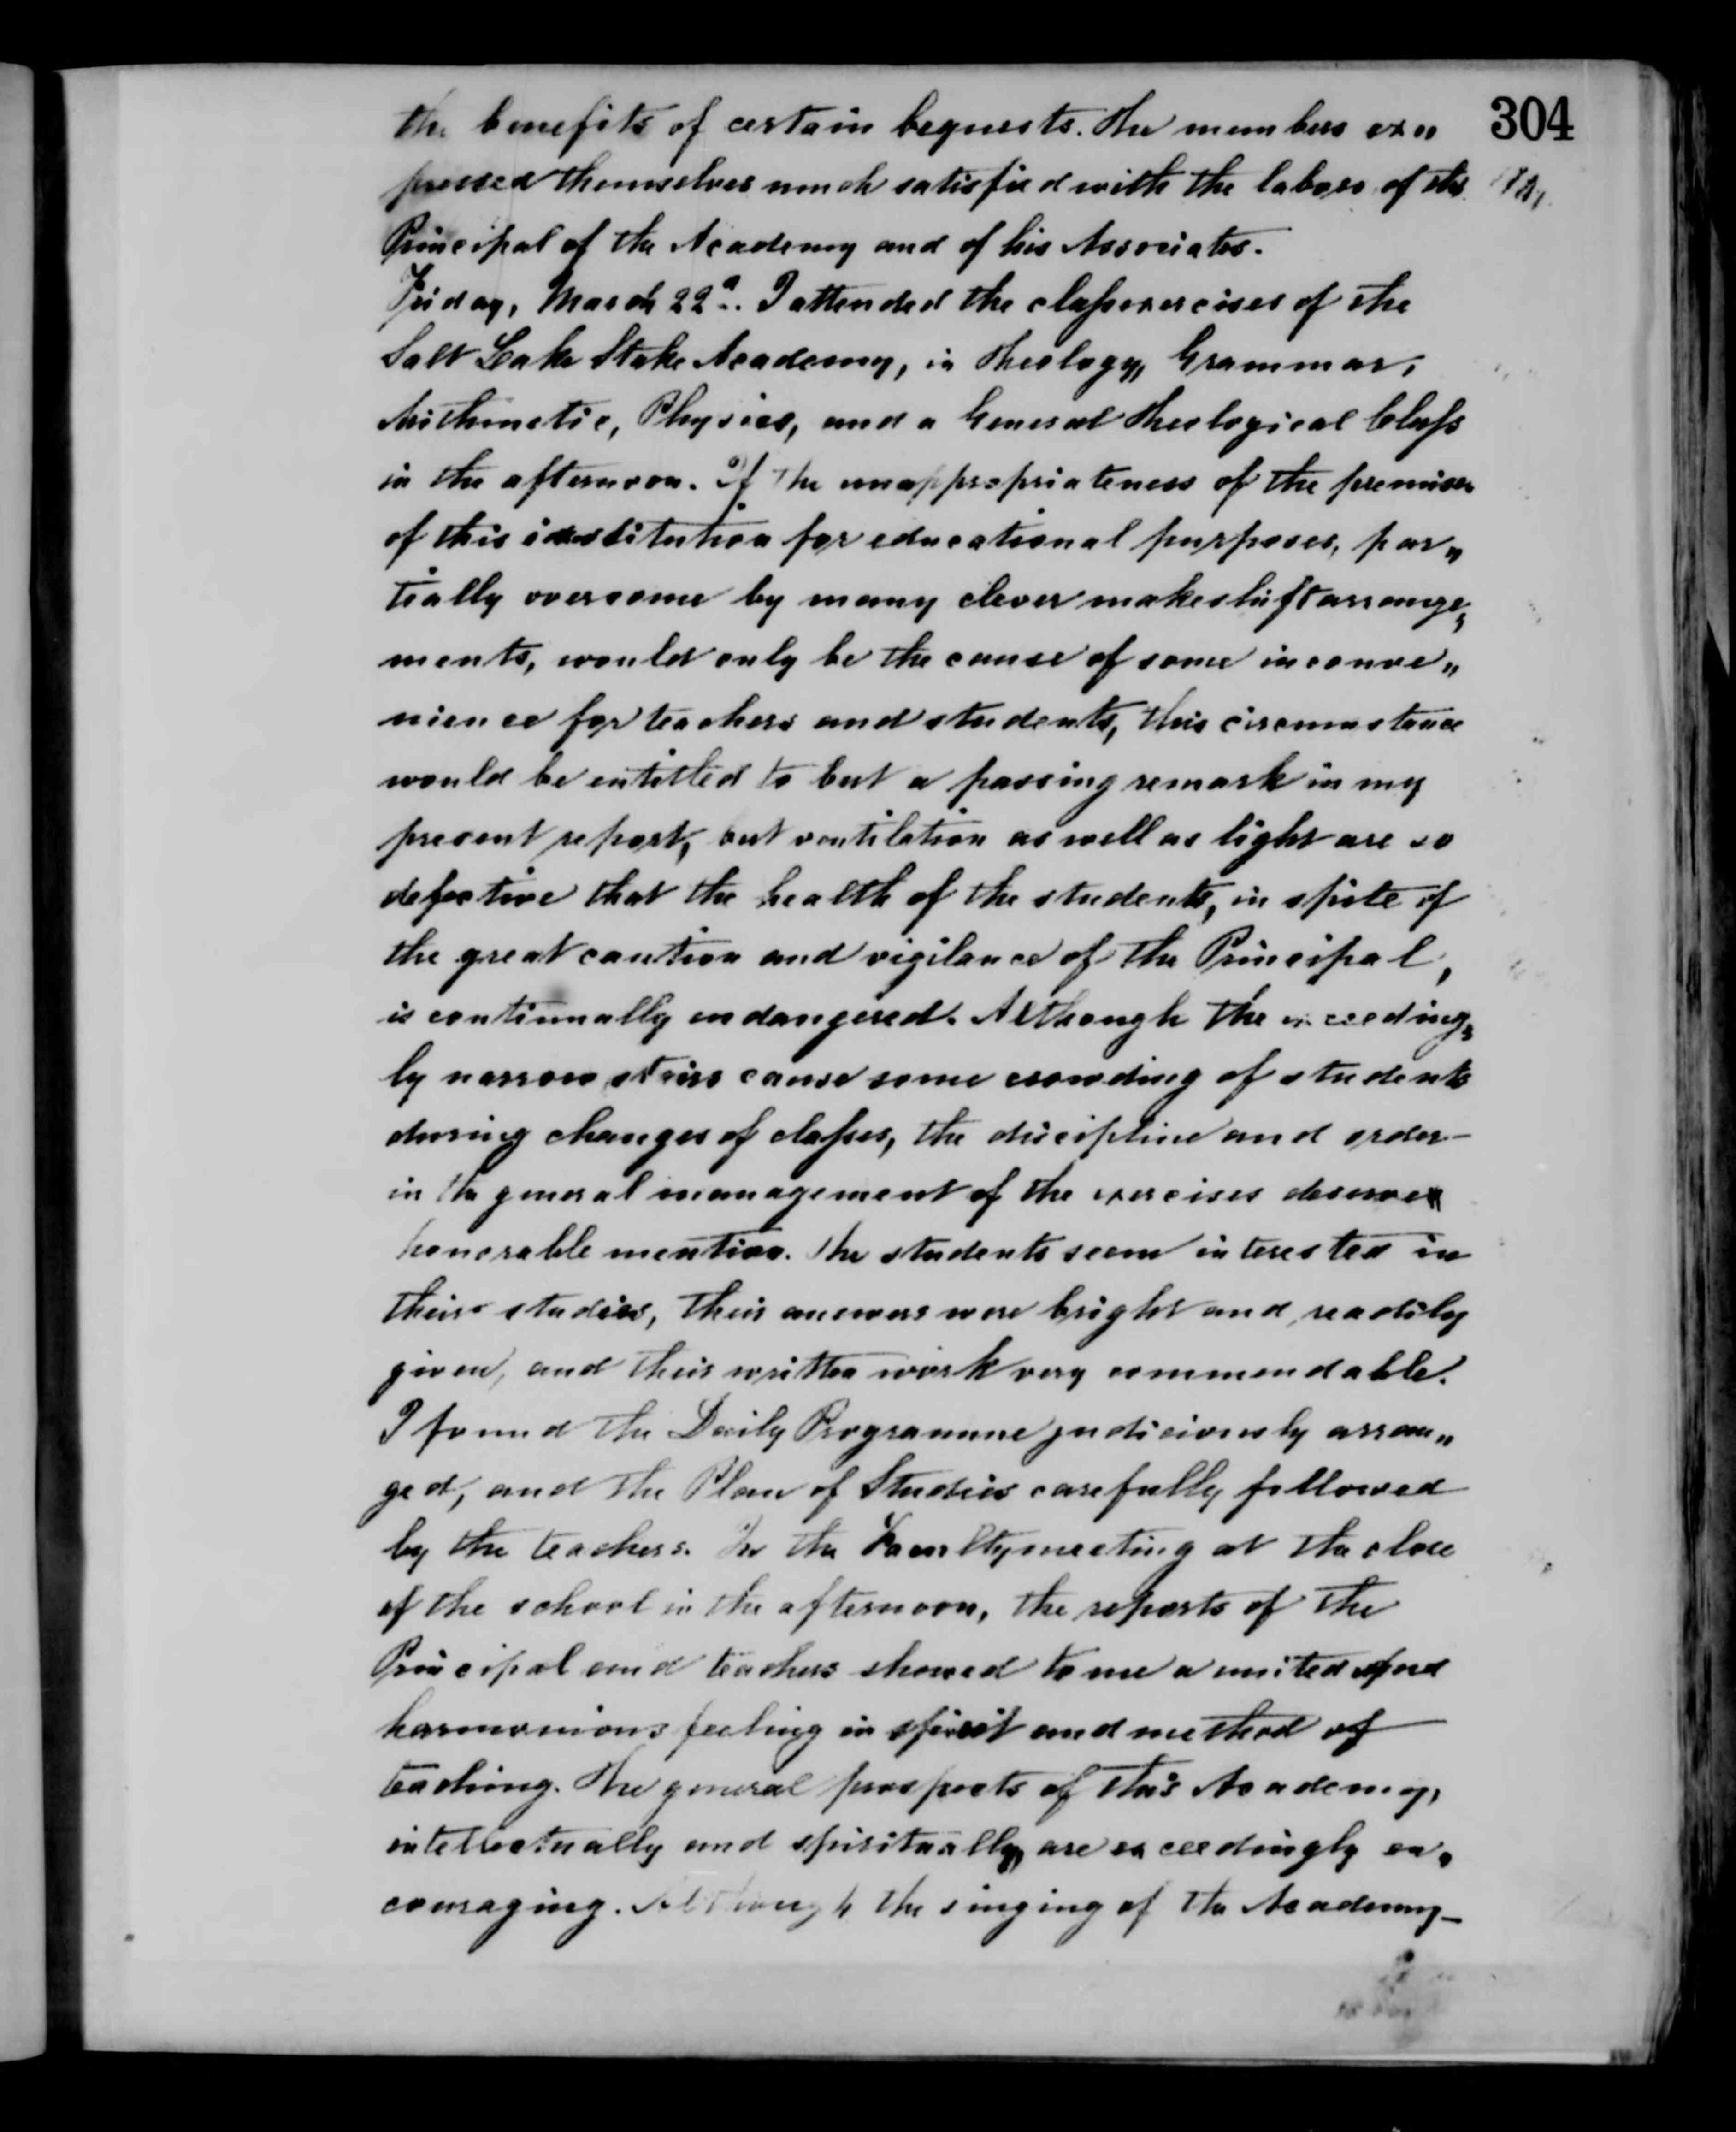 304
the benefits of certain bequests. The members ex„
pressed themselves much satisfied with the labors of the
Principal of the Academy and of his Associates.
Friday, March 22d. I attended the class exercises of the
Salt Lake Stake Academy, in Theology, Grammar,
Arithmetic, Physics, and a General Theological Class
in the afternoon. If the unappropriateness of the premises
of this institution for educational purposes, par„
tially overcome by many clever makeshift arrange„
ments, would only be the cause of some inconve„
nience for teachers and students, this circumstance
would be entitled to but a passing remark in my
present report, but ventilation as well as light are so
defective that the health of the students, in spite of
the great caution and vigilance of the Principal,
is continually endangered. Although the exceeding„
ly narrow stairs cause some crowding of students
during changes of classes, the discipline and order
in the general management of the exercises deserve
honorable mention. The students seem interested in
their studies, their answers were bright and readily
given, and their written work very commendable.
I found the Daily Programme judiciously arran„
ged, and the Plan of Studies carefully followed
by the teachers. In the Faculty meeting at the close
of the school in the afternoon, the reports of the
Principal and teachers showed to me a united and
harmonious feeling in spirit and method of
teaching. The general prospects of this Academy,
intellectually and spiritually, are exceedingly en„
couraging. Although the singing of the Academy